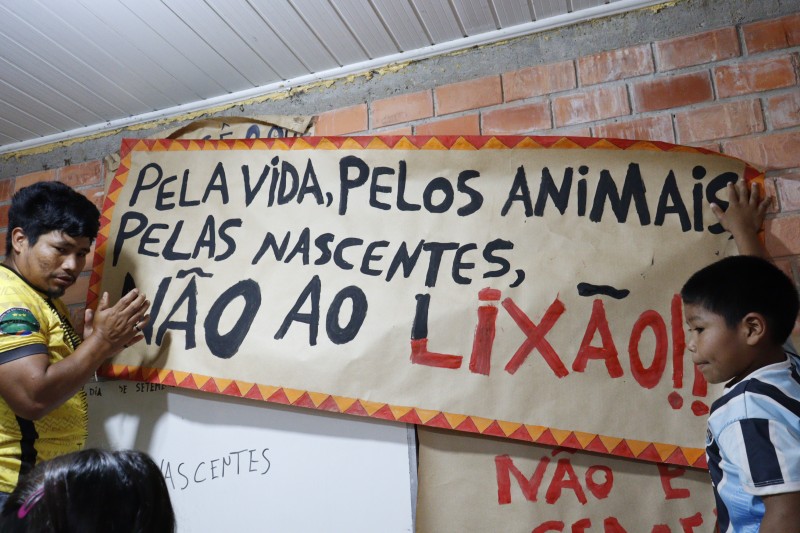 PELA VIDA, PELOS ANIMAIS
PELAS NASCENTES,
NÃO AO LIXÃO!!
DIA DE SETEM
NASCENTES
NÃO E